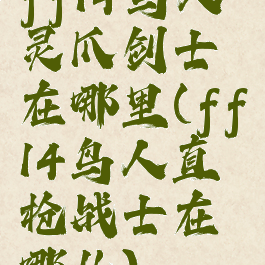 ff14鸟人
灵爪剑士
在哪里(ff
14鸟人直
枪战士在
哪儿)